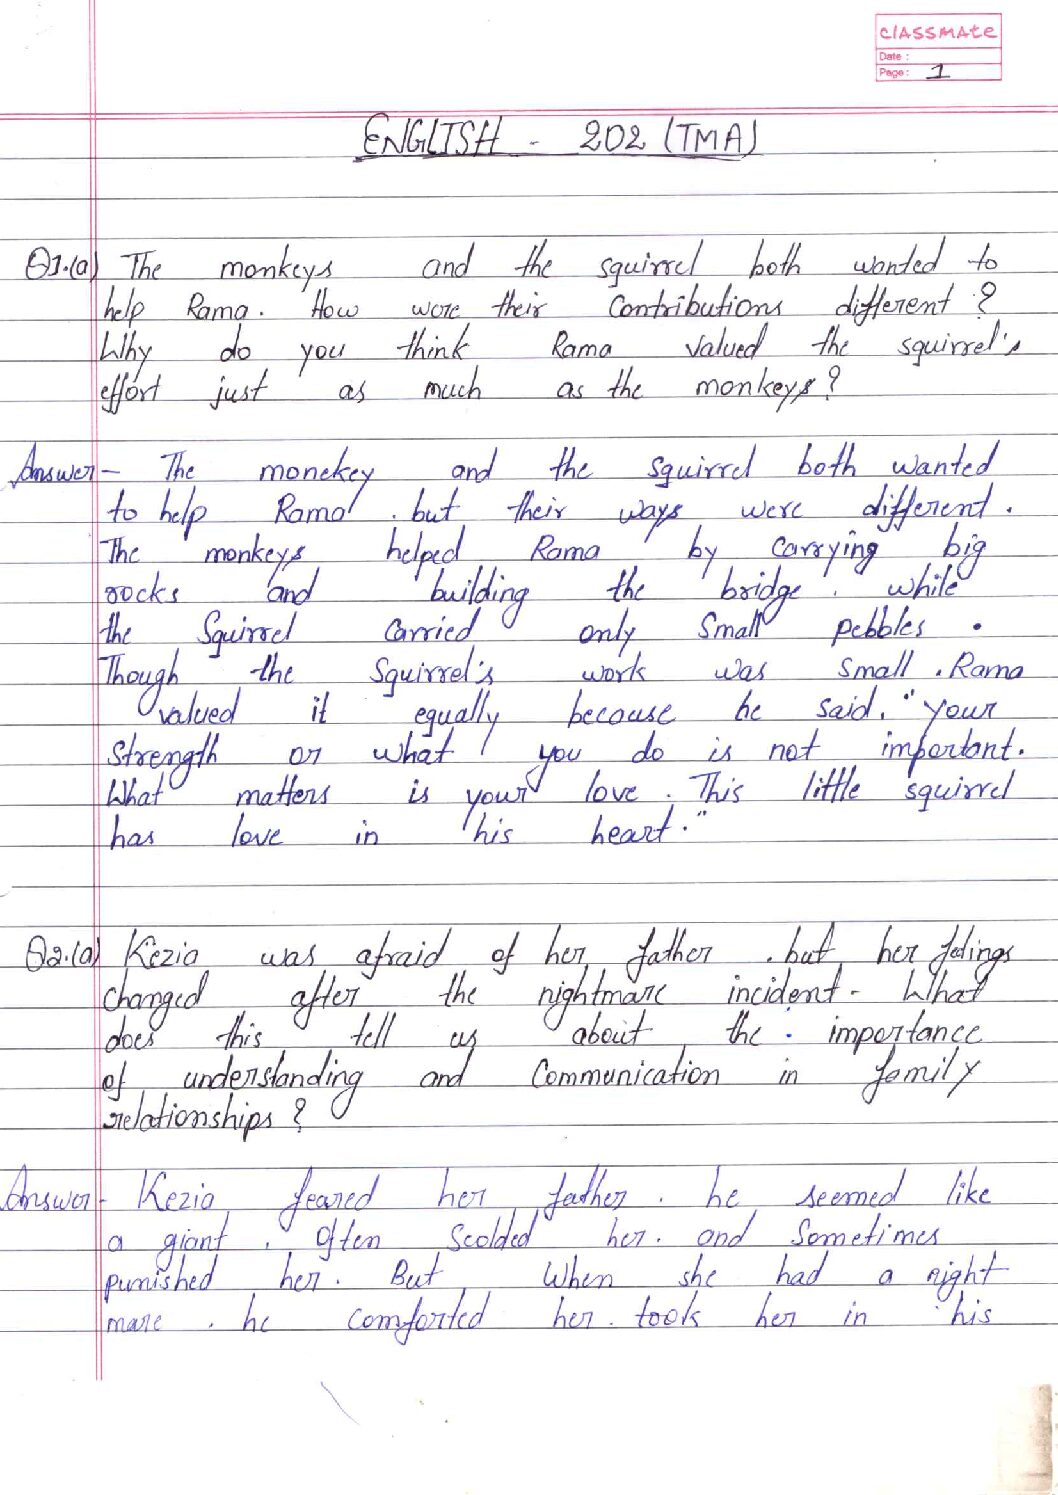 classmate
Date :
Page : 1
ENGLISH - 202 (TMA)
Q1.(a) The monkeys and the squirrel both wanted to
help Rama. How were their Contributions different ?
Why do you think Rama valued the squirrel's
effort just as much as the monkeys?
Answer - The monekey and the squirrel both wanted
to help Rama . but their ways were different .
The monkeys helped Rama by carrying big
rocks and building the bridge . while
the Squirrel carried only Small pebbles .
Though the Squirrel's work was small . Rama
valued it equally because he said. "your
strength or what you do is not important.
What matters is your love . This little squirrel
has love in his heart ."
Q2.(a) Kezia was afraid of her father . but her felings
changed after the nightmare incident - What
does this tell us about the . importance
of understanding and Communication in family
relationships ?
Answer - Kezia feared her father . he seemed like
a giant . Often Scolded her . and Sometimes
punished her . But When she had a night
mare . he comforted her . took her in his